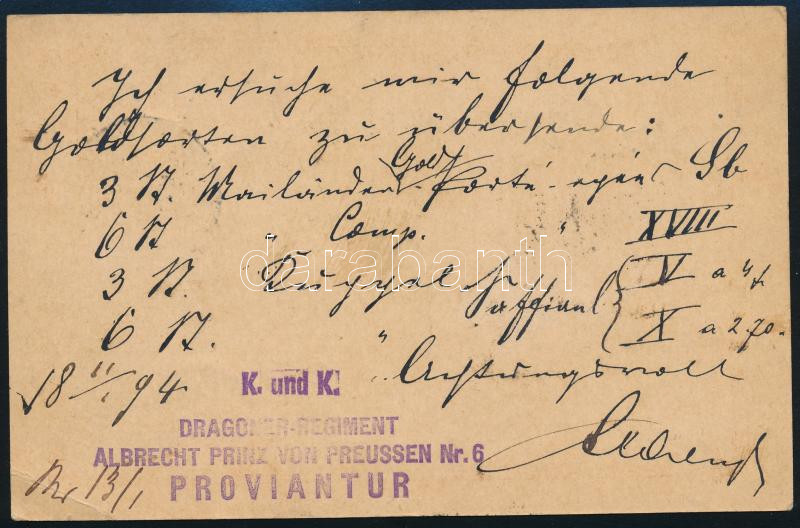 Ich ersuche mir folgende
Goldsorten zu übersende:
3 St. Mailänder Gold Porté-epée Sb
6 St " Comp. " XVIII
3 St. Kuppel V a 4
6 St. " X a 2.70.
18 11/1 94 Achtungsvoll
K. und K.
DRAGONER-REGIMENT
ALBRECHT PRINZ VON PREUSSEN Nr. 6
PROVIANTUR
13/1
darabanth